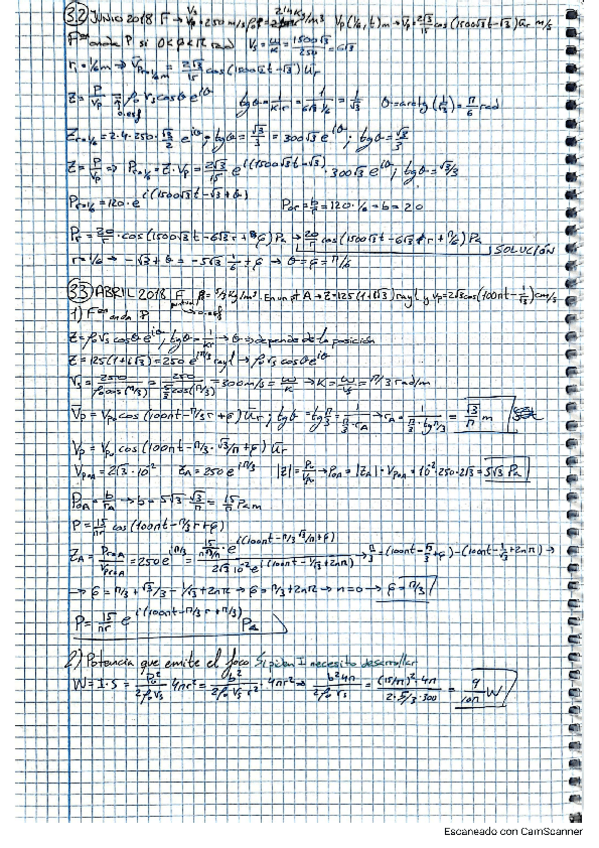 32 JUNIO 2018 F → Vs = 250 m/s ρ = 2 kg/m³ Vp (1/6, t) m → Vp = 2√3/15 cos (1500√3t - √3) ūr m/s
Fᵒⁿ onda P si 0<φ<π rad Vs = ω/K = 1500√3/250 = 6√3
r₁ = 1/6 m → V̄p r=1/6m = 2√3/15 cos (1500√3t - √3) ūr
Z = P/Vp = ρ₀ vs cosθ e^iθ tgθ = 1/Kr = 1/(6√3 · 1/6) = 1/√3 θ = arctg (1/√3) = π/6 rad
o.esf
Z r=1/6 = 2·4·250·√3/2 e^iθ; tgθ = √3/3 = 300√3 e^iθ; tgθ = √3/3
Z = P/Vp → P r=1/6 = Z·Vp = 2√3/15 e^i(1500√3t - √3) · 300√3 e^iθ; tgθ = √3/3
P r=1/6 = 120·e^i(1500√3t - √3 + θ) P₀r = b/r = 120·1/6 = b = 20
Pr = 20/r · cos (1500√3t - 6√3 r + φ) Pa → 20/r cos (1500√3t - 6√3 r + π/6) Pa
SOLUCIÓN
r = 1/6 → -√3 + θ = -6√3 1/6 + φ → θ = φ = π/6
33 ABRIL 2018 F puntual ρ = 5/3 kg/m³. En un pt A → Z = 125(1+i√3) rayl y Vp = 2√3 cos (100πt - 1/√3) cm/s
1) Fᵒⁿ onda P o.esf
Z = ρ₀ vs cosθ e^iθ, tgθ = 1/Kr → θ → depende de la posición
Z = 125(1+i√3) = 250 e^iπ/3 rayl → ρ₀ vs cosθ e^iθ
Vs = 250/(ρ₀ cos(π/3)) = 250/(5/3 cos(π/3)) = 300 m/s = ω/K → K = ω/Vs = π/3 rad/m
V̄p = Vp₀ cos (100πt - π/3 r + φ) ūr; tgθ = tg π/3 = 1/(π/3 · rA) → rA = 1/(π/3 · tg π/3) = √3/π m
V̄p = Vp₀ cos (100πt - π/3 · √3/π + φ) ūr
Vp₀A = 2√3·10⁻² ZA = 250 e^iπ/3 |Z| = P₀/Vp₀ → P₀A = |ZA|·Vp₀A = 10⁻²·250·2√3 = 5√3 Pa
P₀A = b/rA → b = 5√3 · √3/π = 15/π Pa m
P = 15/πr cos (100πt - π/3 r + φ)
→ φ = π/3 + √3/3 - 1/√3 + 2nπ → φ = π/3 + 2nπ → n=0 → φ = π/3
P = 15/πr e^i(100πt - π/3 r + π/3) Pa
2) Potencia que emite el foco Si piden I necesito desarrollar
W = I·S = P₀²/2ρ₀vs 4πr² = b²/(2ρ₀vs r²) · 4πr² → b² 4π/2ρ₀vs = (15/π)²·4π/(2·5/3·300) = 9/10π W
Escaneado con CamScanner